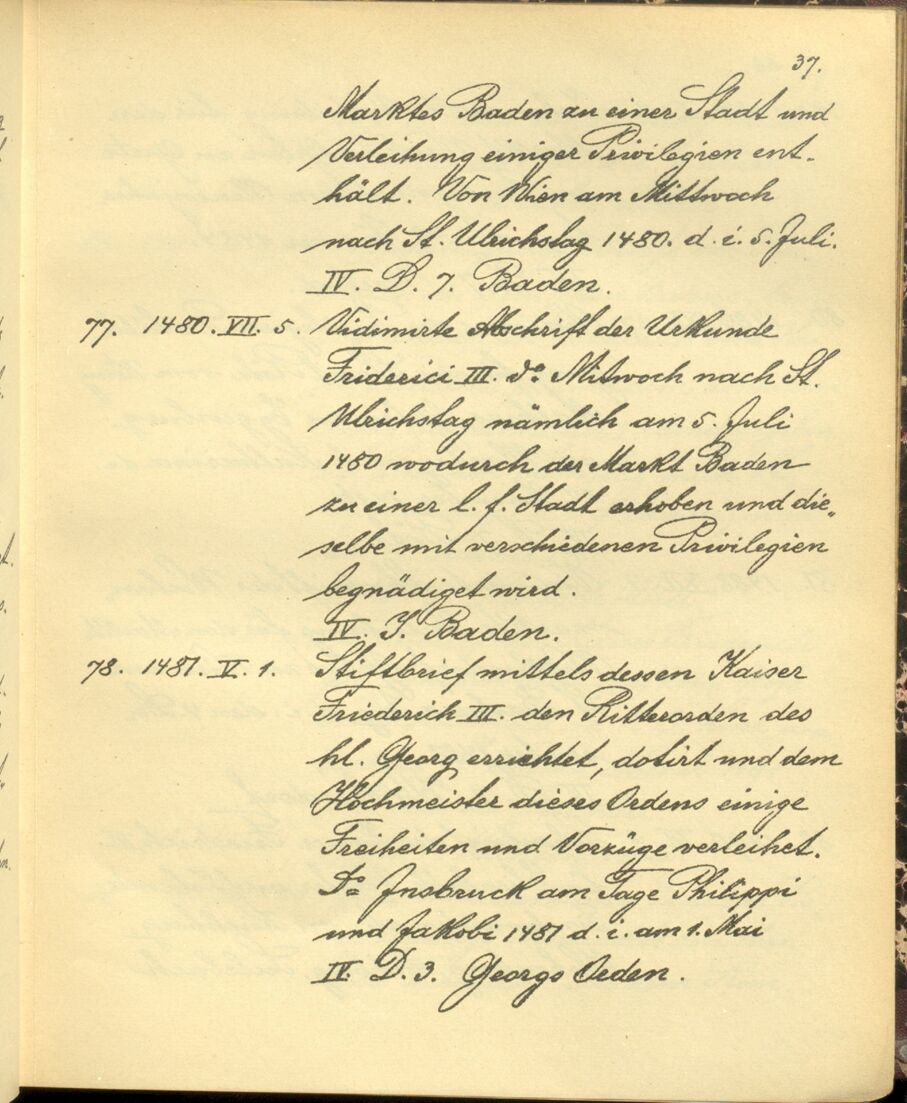 37.
Marktes Baden zu einer Stadt und
Verleihung einiger Privilegien ent-
hält. Von Wien am Mittwoch
nach St. Ulrichstag 1480. d. i. 5. Juli.
IV. D. 7. Baden.
77. 1480. VII. 5. Vidimirte Abschrift der Urkunde
Friderici III. do. Mitwoch nach St.
Ulrichstag nämlich am 5. Juli
1480 wodurch der Markt Baden
zu einer l. f. Stadt erhoben und die„
selbe mit verschiedenen Privilegien
begnädiget wird.
IV. J. Baden.
78. 1481. V. 1. Stiftbrief mittels dessen Kaiser
Friederich III. den Ritterorden des
hl. Georg errichtet, dotirt und dem
Hochmeister dieses Ordens einige
Freiheiten und Vorzüge verleihet.
Do Insbruck am Tage Philippi
und Jakobi 1481 d. i. am 1. Mai
IV. D. 3. Georgs Orden.